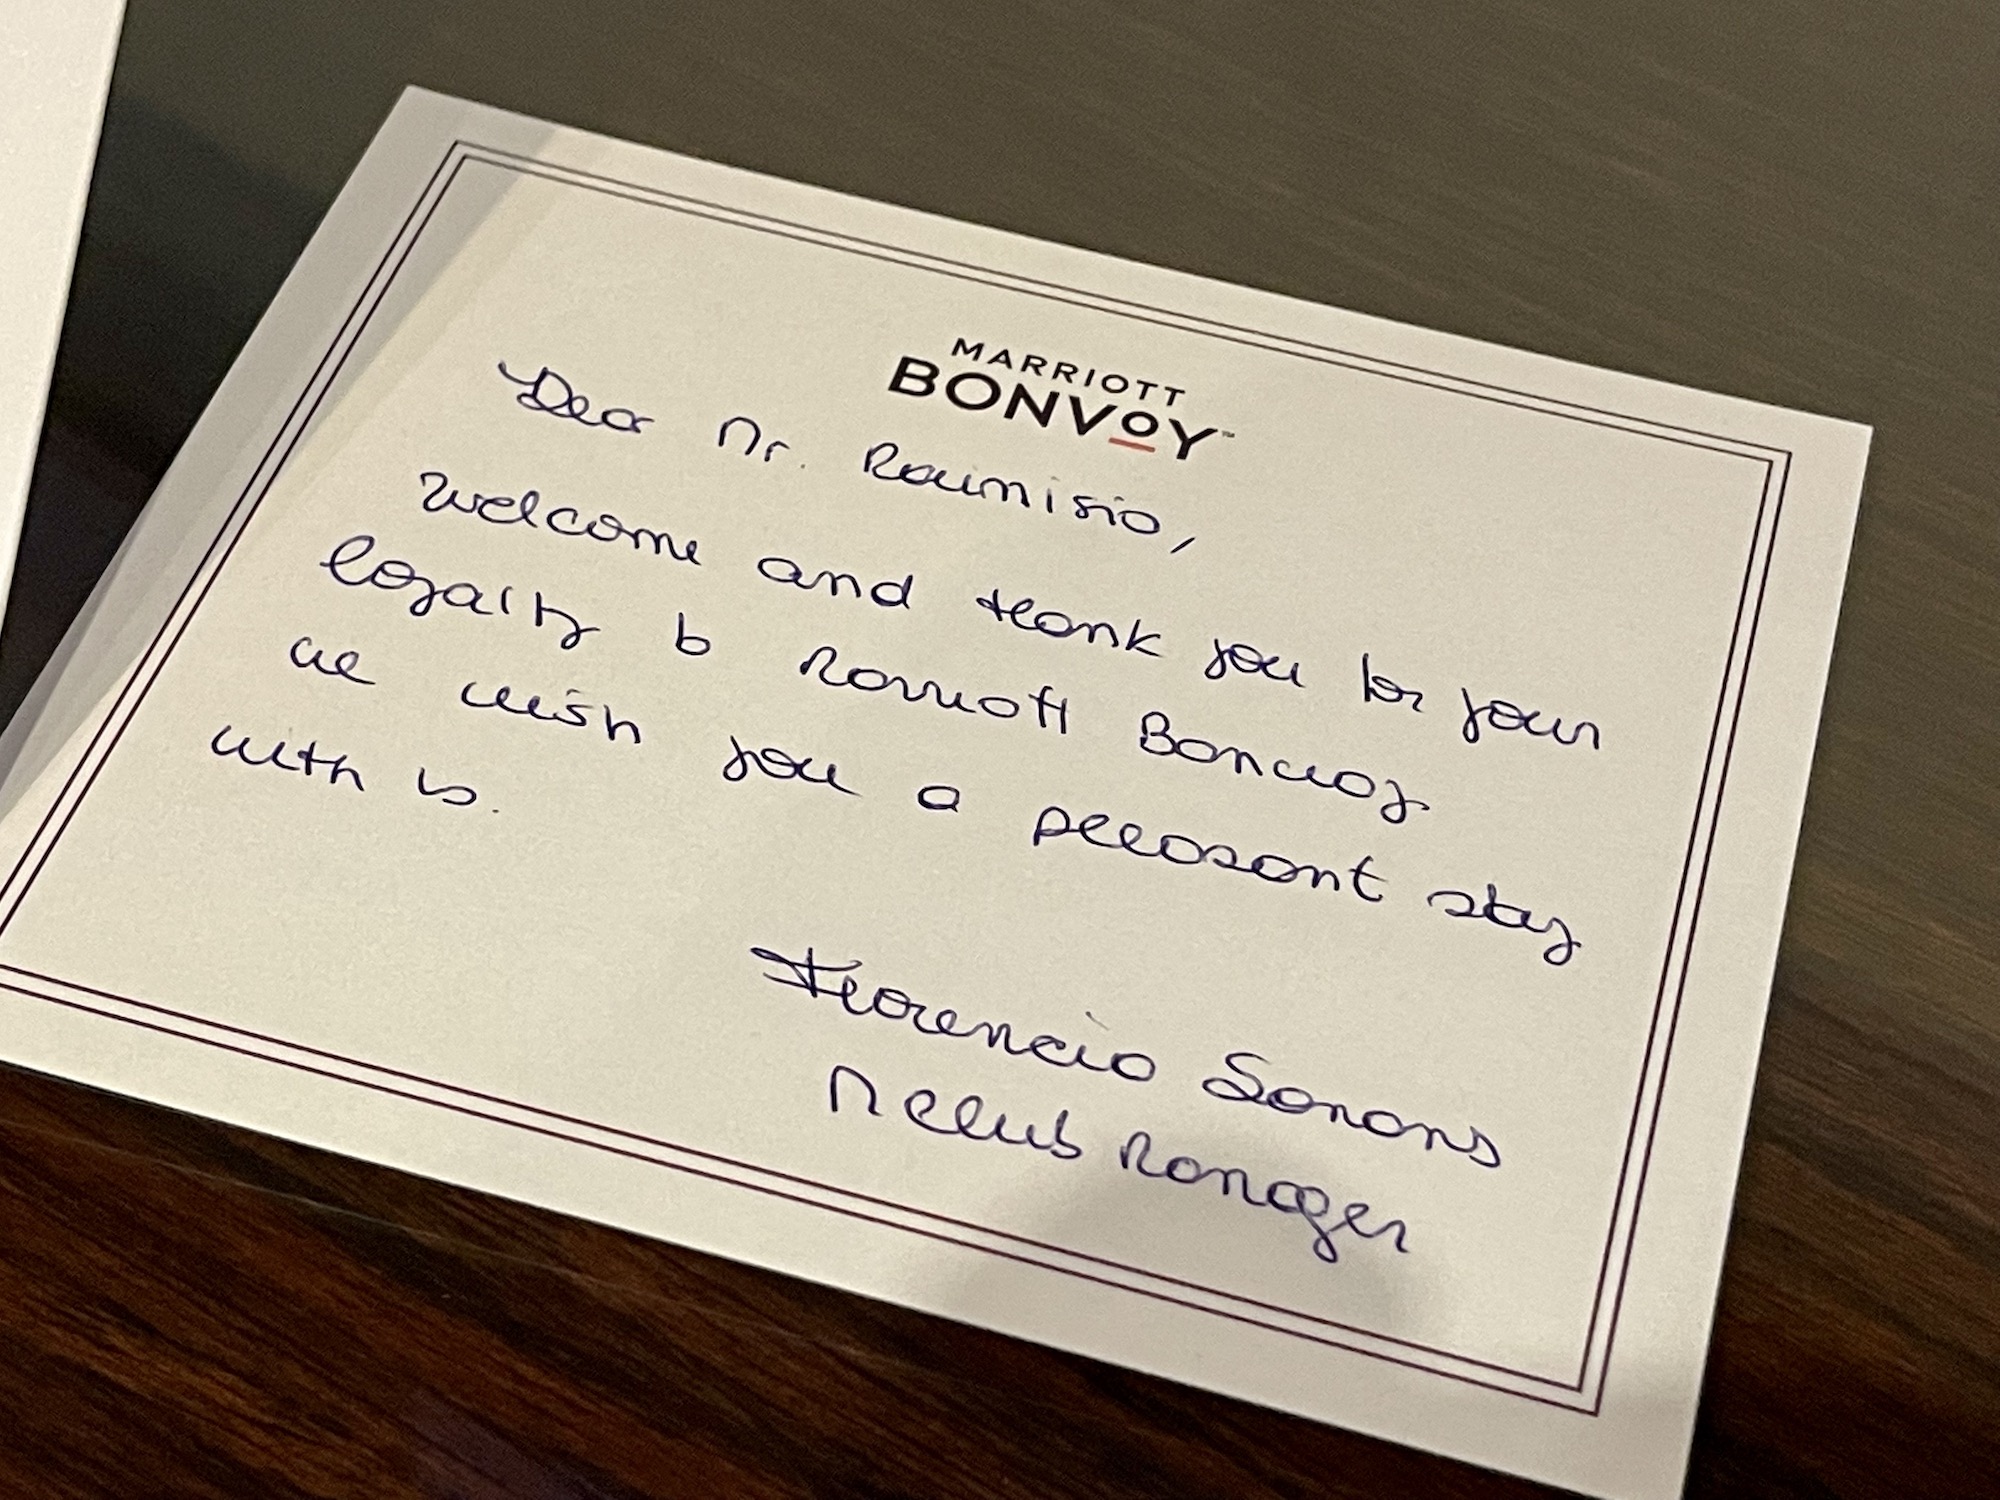 MARRIOTT
BONVOY™
Dear Mr. Raimisio,
Welcome and thank you for your
loyalty to Marriott Bonvoy
we wish you a pleasant stay
with us.
Florencia Somons
M Club Manager